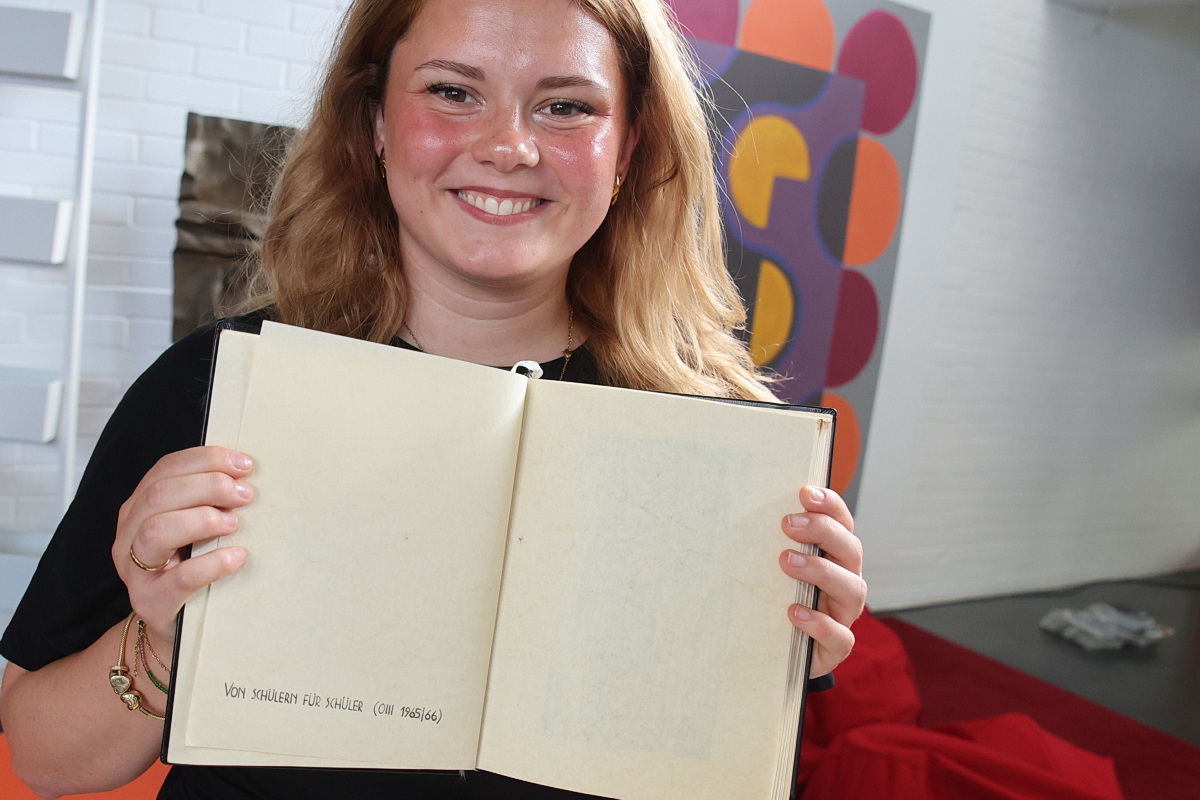 VON SCHÜLERN FÜR SCHÜLER (OIII 1965/66)